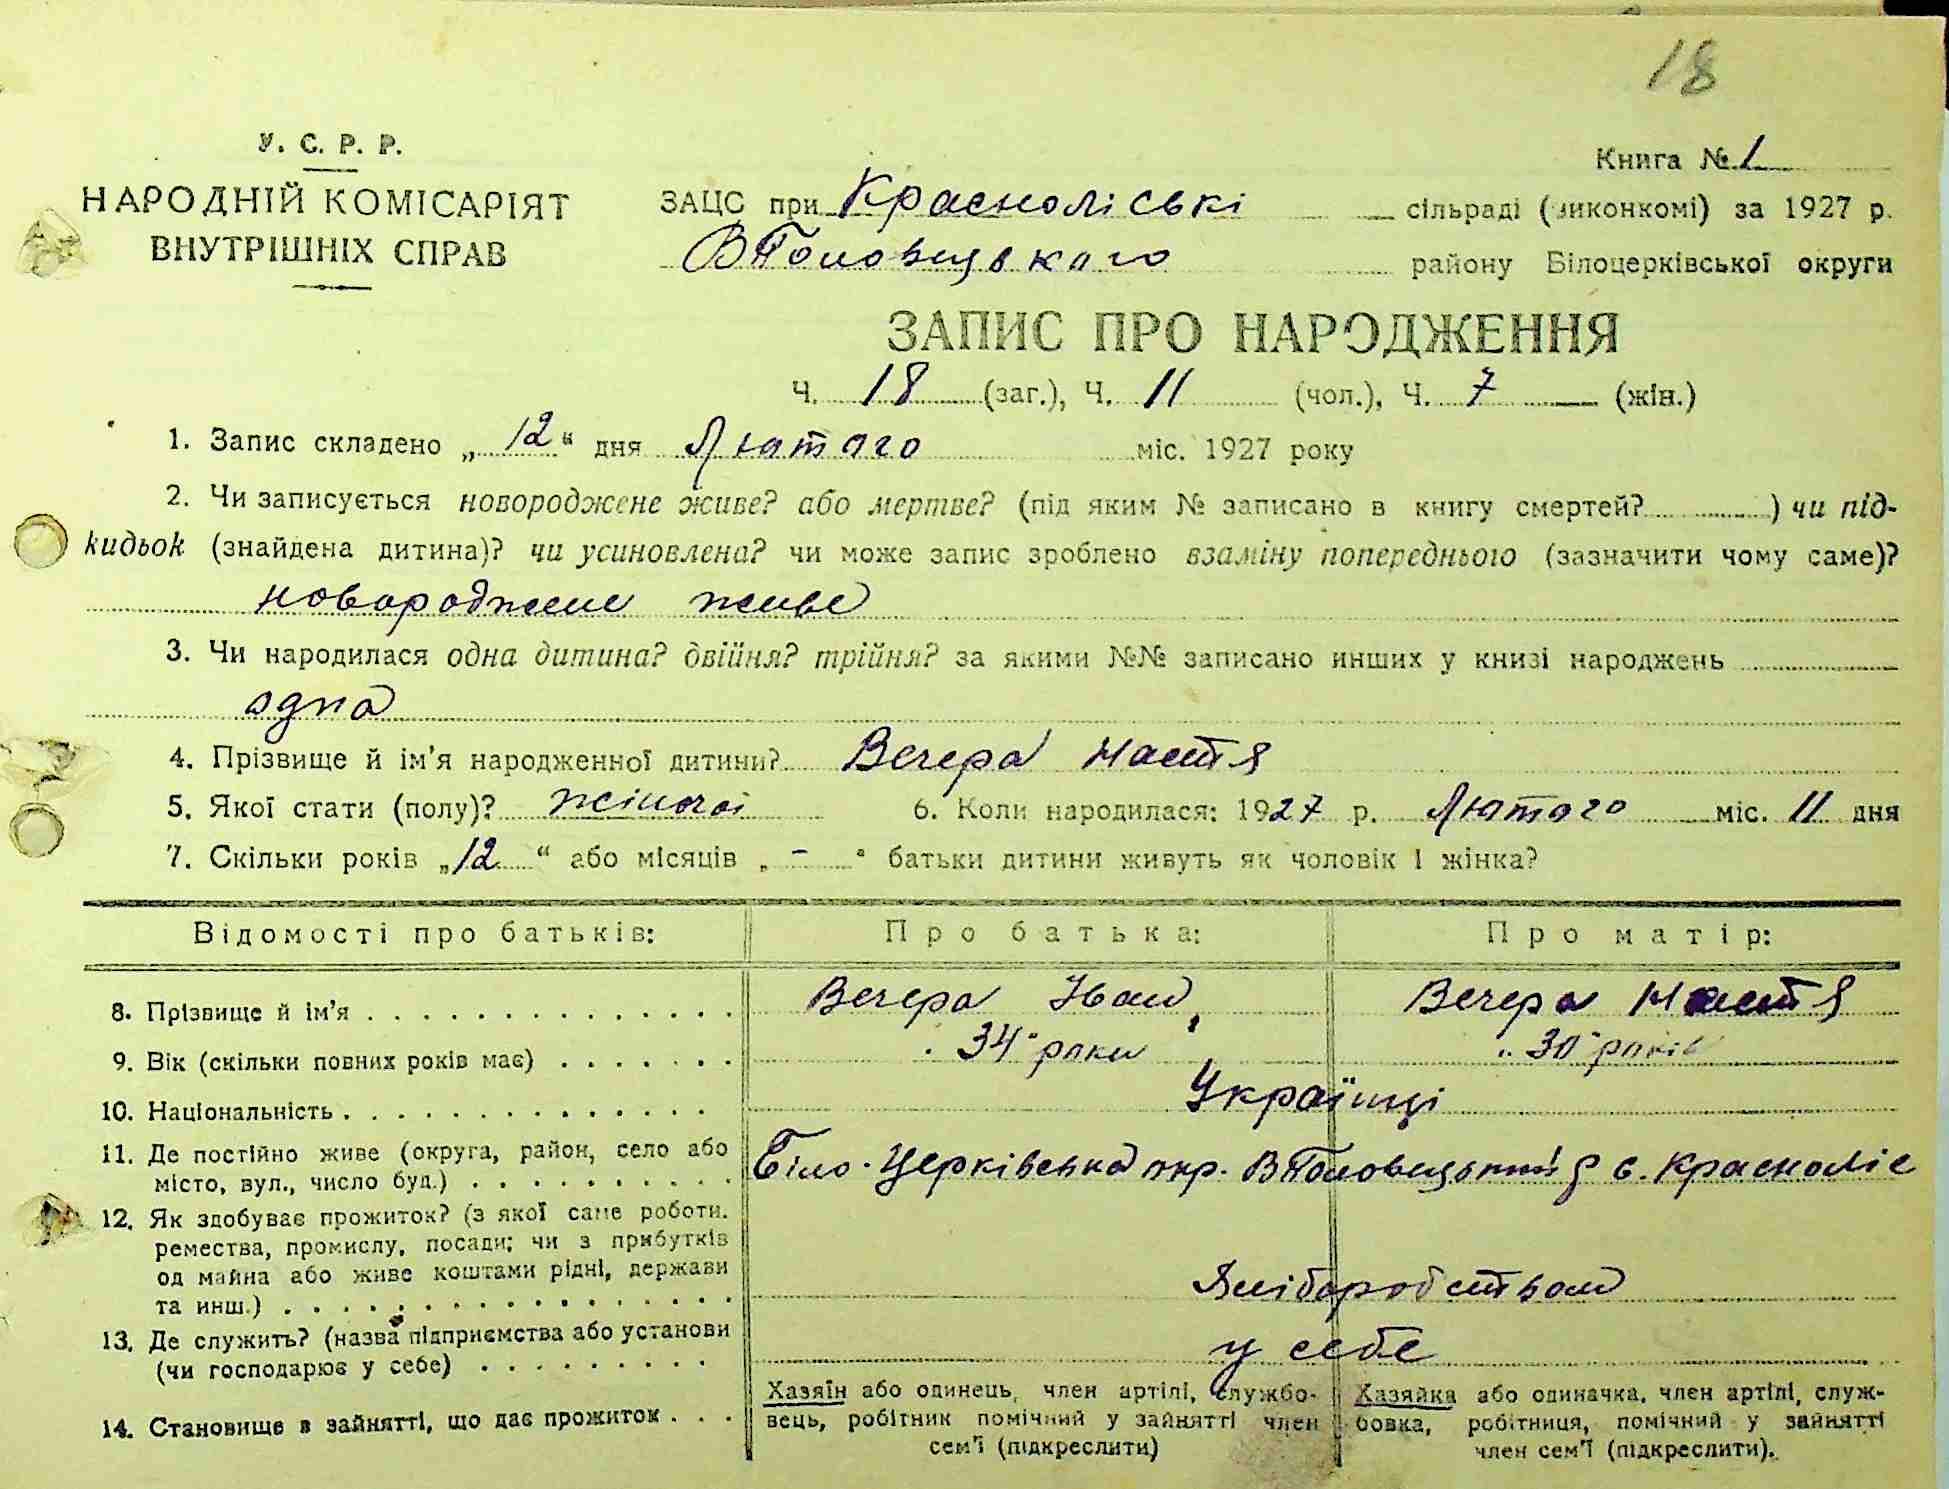 18
У. С. Р. Р.
Книга № 1
НАРОДНІЙ КОМІСАРІЯТ
ВНУТРІШНІХ СПРАВ
ЗАЦС при Красноліські сільраді (виконкомі) за 1927 р.
ВПоловецького району Білоцерківської округи
ЗАПИС ПРО НАРОДЖЕННЯ
Ч. 18 (заг.), Ч. 11 (чол.), Ч. 7 (жін.)
1. Запис складено „12“ дня Лютого міс. 1927 року
2. Чи записується новороджене живе? або мертве? (під яким № записано в книгу смертей? ) чи під-
кидьок (знайдена дитина)? чи усиновлена? чи може запис зроблено взаміну попереднього (зазначити чому саме)?
новороджене живе
3. Чи народилася одна дитина? двійня? трійня? за якими №№ записано инших у книзі народжень
одна
4. Прізвище й ім'я народженної дитини? Вечера Настя
5. Якої стати (полу)? жіночої 6. Коли народилася: 1927 р. Лютого міс. 11 дня
7. Скільки років „12“ або місяців „-“ батьки дитини живуть як чоловік і жінка?
Відомості про батьків: Про батька: Про матір:
8. Прізвище й ім'я Вечера Іван Вечера Настя
9. Вік (скільки повних років має) 34 роки 30 років
10. Національність Українці
11. Де постійно живе (округа, район, село або
місто, вул., число буд.) Біло-Церківська окр. ВПоловецький р с. Красноліс
12. Як здобуває прожиток? (з якої саме роботи,
ремества, промислу, посади; чи з прибутків
од майна або живе коштами рідні, держави
та инш.) Хліборобством
13. Де служить? (назва підприємства або установи
(чи господарює у себе) у себе
14. Становище в зайнятті, що дає прожиток
Хазяїн або одинець, член артілі, службо-
вець, робітник помічний у зайнятті член
сем'ї (підкреслити)
Хазяйка або одиначка, член артілі, служ-
бовка, робітниця, помічний у зайнятті
член сем'ї (підкреслити).